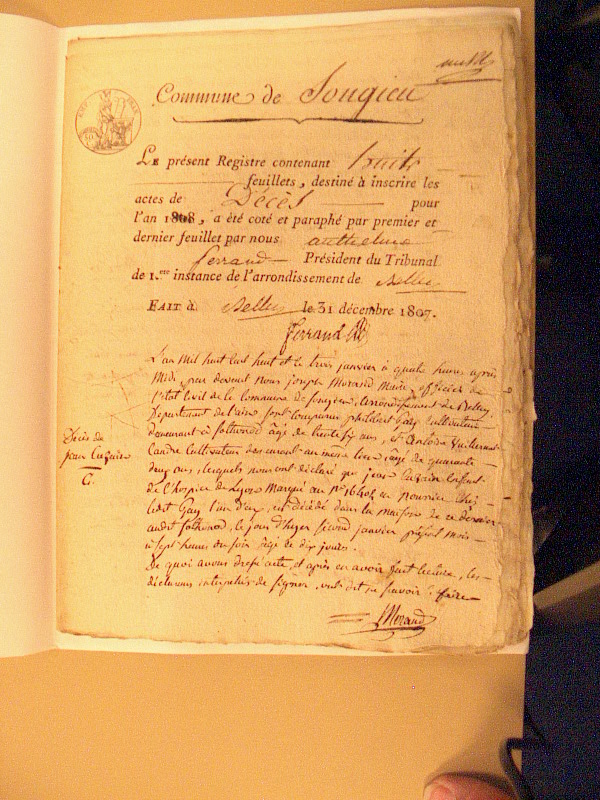 Commune de Songieu
LE présent Registre contenant huit
feuillets, destiné à inscrire les
actes de Décès pour
l'an 1808, a été coté et paraphé par premier et
dernier feuillet par nous anthelme
ferrand Président du Tribunal
de 1.ere instance de l'arrondissement de Belley
FAIT à Belley le 31 décembre 1807.
ferrand
L'an mil huit cent huit et le trois janvier à quatre heures après
midi, par devant nous joseph Morand Maire, officier de
l'état Civil de la Commune de Songieu, arrondissement de Belley,
Département de l'ain, sont comparus philibert Gay Cultivateur
demeurant à sothonod, âgé de trente ans, et antoine
Cultivateur demeurant au même lieu, âgé de quarante
deux ans, lesquels nous ont déclaré que jean enfant
de l'hospice de Lyon Marqué au N.º en nourrice chez
ledit Gay l'un d'eux, est décédé dans la maison de ce dernier
audit sothonod, le jour d'hyer second janvier présent mois
à sept heures du soir âgé de dix jours.
De quoi avons dressé acte, et après en avoir fait lecture, les
déclarants interpellés de signer, ont dit ne savoir faire
Morand
Décès de
jean
G.